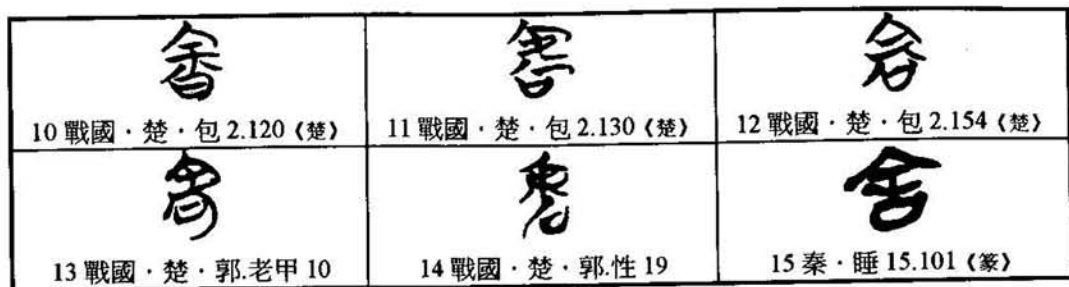 10 戰國．楚．包 2.120《楚》
11 戰國．楚．包 2.130《楚》
12 戰國．楚．包 2.154《楚》
13 戰國．楚．郭.老甲 10
14 戰國．楚．郭.性 19
舍
15 秦．睡 15.101《篆》